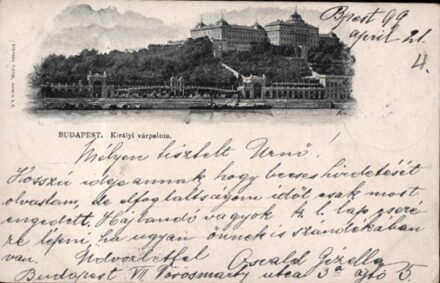 Bpest 99
april 21
4.
BUDAPEST. Királyi várpalota.
Mélyen tisztelt Urnő!
Hosszú ideje annak hogy becses hirdetését
olvastam, de elfoglaltságom időt csak most
engedett. Hajlandó vagyok k. l. lap cseré
re lépni, ha ugyan önnek is szándékában
van. Üdvözlettel Oswald Gizella
Budapest VII Vörösmarty utca 3a ajtó 5